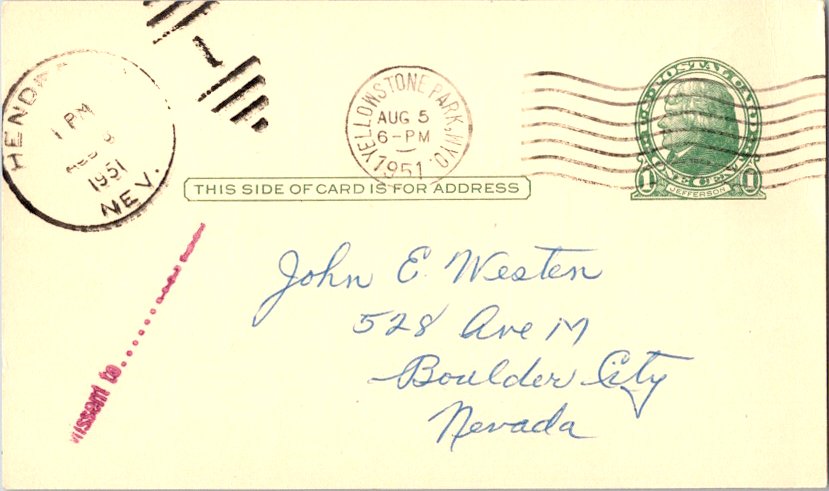 HEND
PM
1951
NEV.
YELLOWSTONE PARK, WYO.
AUG 5
6-PM
1951
POSTAL CARD
1 JEFFERSON 1
THIS SIDE OF CARD IS FOR ADDRESS
Missent to
John E. Westen
528 Ave M
Boulder City
Nevada